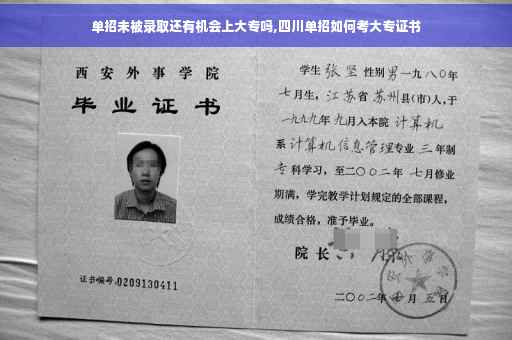 单招未被录取还有机会上大专吗,四川单招如何考大专证书
西安外事学院
毕业证书
证书编号:0209130411
学生 张坚 性别 男 一九八〇年
七月生, 江苏省 苏州县(市)人,于
一九九九年 九月入本院 计算机
系 计算机信息管理专业 三 年制
专科学习,至二〇〇二年 七月修业
期满,学完教学计划规定的全部课程,
成绩合格,准予毕业。
院长
二〇〇二年 月 五日